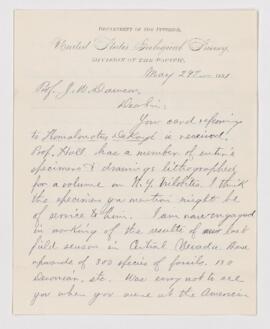 DEPARTMENT OF THE INTERIOR,
United States Geological Survey,
DIVISION OF THE PACIFIC.
May 29th 1881
Prof. J. W. Dawson
Dear Sir.
Your card referring
to Homalonotus DeKayi is received.
Prof. Hall has a number of entire
specimens & drawings lithographed
for a volume on N.Y. trilobites. I think
the specimen you mention might be
of service to him. I am now engaged
in working of the results of our last
field season in Central Nevada. Have
upwards of 300 species of fossils. 130
Devonian, etc. Was sorry not to see
you when you were at the American